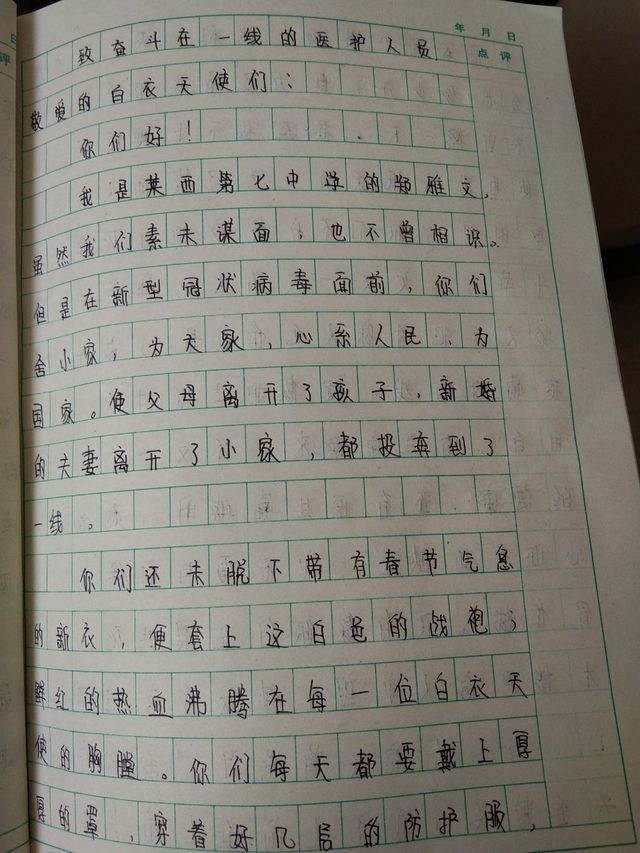 年 月 日
点 评
致奋斗在一线的医护人员
敬爱的白衣天使们：
你们好！
我是莱西第七中学的郑雅文，
虽然我们素未谋面，也不曾相识。
但是在新型冠状病毒面前，你们
舍小家，为大家，心系人民，为
国家。使父母离开了孩子，新婚
的夫妻离开了小家，都投奔到了
一线。
你们还未脱下带有春节气息
的新衣，便套上这白色的战袍；
鲜红的热血沸腾在每一位白衣天
使的胸膛。你们每天都要戴上厚
厚的罩，穿着好几层的防护服，